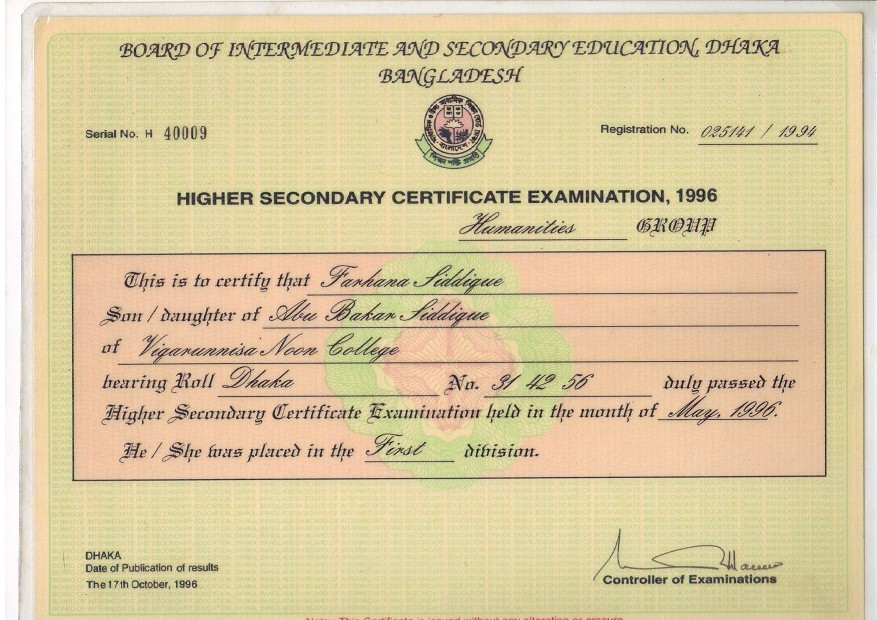 BOARD OF INTERMEDIATE AND SECONDARY EDUCATION, DHAKA
BANGLADESH
Serial No. H 40009
Registration No. 025141 / 1994
HIGHER SECONDARY CERTIFICATE EXAMINATION, 1996
Humanities GROUP
This is to certify that Farhana Siddique
Son / daughter of Abu Bakar Siddique
of Viqarunnisa Noon College
bearing Roll Dhaka No. 31 42 56 duly passed the
Higher Secondary Certificate Examination held in the month of May, 1996.
He / She was placed in the First division.
DHAKA
Date of Publication of results
The 17th October, 1996
Controller of Examinations
Note : This Certificate is issued without any alteration or erasure